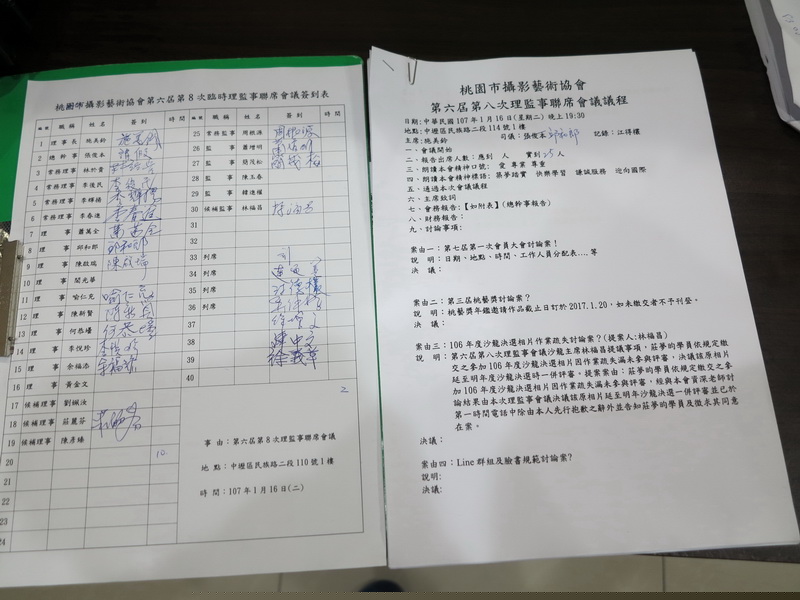 桃園市攝影藝術協會第六屆第8次臨時理監事聯席會議簽到表
編號 職稱 姓名 簽到 時間 編號 職稱 姓名 簽到 時間
1 理事長 施美鈴
2 總幹事 張俊本
3 常務理事 林於貴
4 常務理事 李後民
5 常務理事 李輝楠
6 常務理事 李春進
7 理事 蕭萬全
8 理事 邱和郎
9 理事 陳啟瑞 陳啟瑞
10 理事 閻光華
11 理事 喻仁克 喻仁克
12 理事 陳新賢
13 理事 何恭墻
14 理事 李俊珍
15 理事 余福添
16 理事 黃金文
17 候補理事 劉姵汝
18 候補理事 莊麗芬
19 候補理事 陳彥蟳
20
10.
21
22
23
24
25 常務監事 周根源
26 監事 蕭增明
27 監事 簡茂松
28 監事 陳玉春
29 監事 韓進權
30 候補監事 林福昌
31
32
33 列席
34 列席
35 列席
36 列席
37
38
39
40
2
事由：第六屆第8次理監事聯席會議
地點：中壢區民族路二段110號1樓
時間：107年1月16日(二)
桃園市攝影藝術協會
第六屆第八次理監事聯席會議議程
日期：中華民國107年1月16日(星期二)晚上19:30
地點：中壢區民族路二段114號1樓
主席：施美鈴 司儀：張俊本 邱和郎 記錄：江得櫂
一、會議開始
二、報告出席人數：應到 人 實到25人
三、朗讀本會精神口號：愛 專業 尊重
四、朗讀本會精神標語：築夢踏實 快樂學習 謙誠服務 迎向國際
五、通過本次會議議程
六、主席致詞
七、會務報告：【如附表】(總幹事報告)
八、財務報告：
九、討論事項：
案由一：第七屆第一次會員大會討論案！
說 明：日期、地點、時間、工作人員分配表…等
決 議：
案由二：第三屆桃藝獎討論案？
說 明：桃藝獎年鑑邀請作品截止日訂於2017.1.20，如未繳交者不予刊登。
決 議：
案由三：106年度沙龍決選相片作業疏失討論案？(提案人：林福昌)
說 明：第六屆第八次理監會議沙龍主席林福昌提議事項，莊夢的學員依規定繳
交之參加106年度沙龍決選相片因作業疏失漏未參與評審，決議該原相片
延至明年度沙龍決選時一併評審。提案東由：莊夢的學員依規定繳交之參
加106年度沙龍決選相片因作業疏失漏未參與評審，經與本會資深老師討
論結果由本次理監事會議決議該原相片延至明年沙龍決選一併評審並已於
第一時間電話中除由本人先行抱歉之辭外並告知莊夢的學員及徵求其同意
在案。
決議：
案由四：Line群組及臉書規範討論案？
說明：
決議：